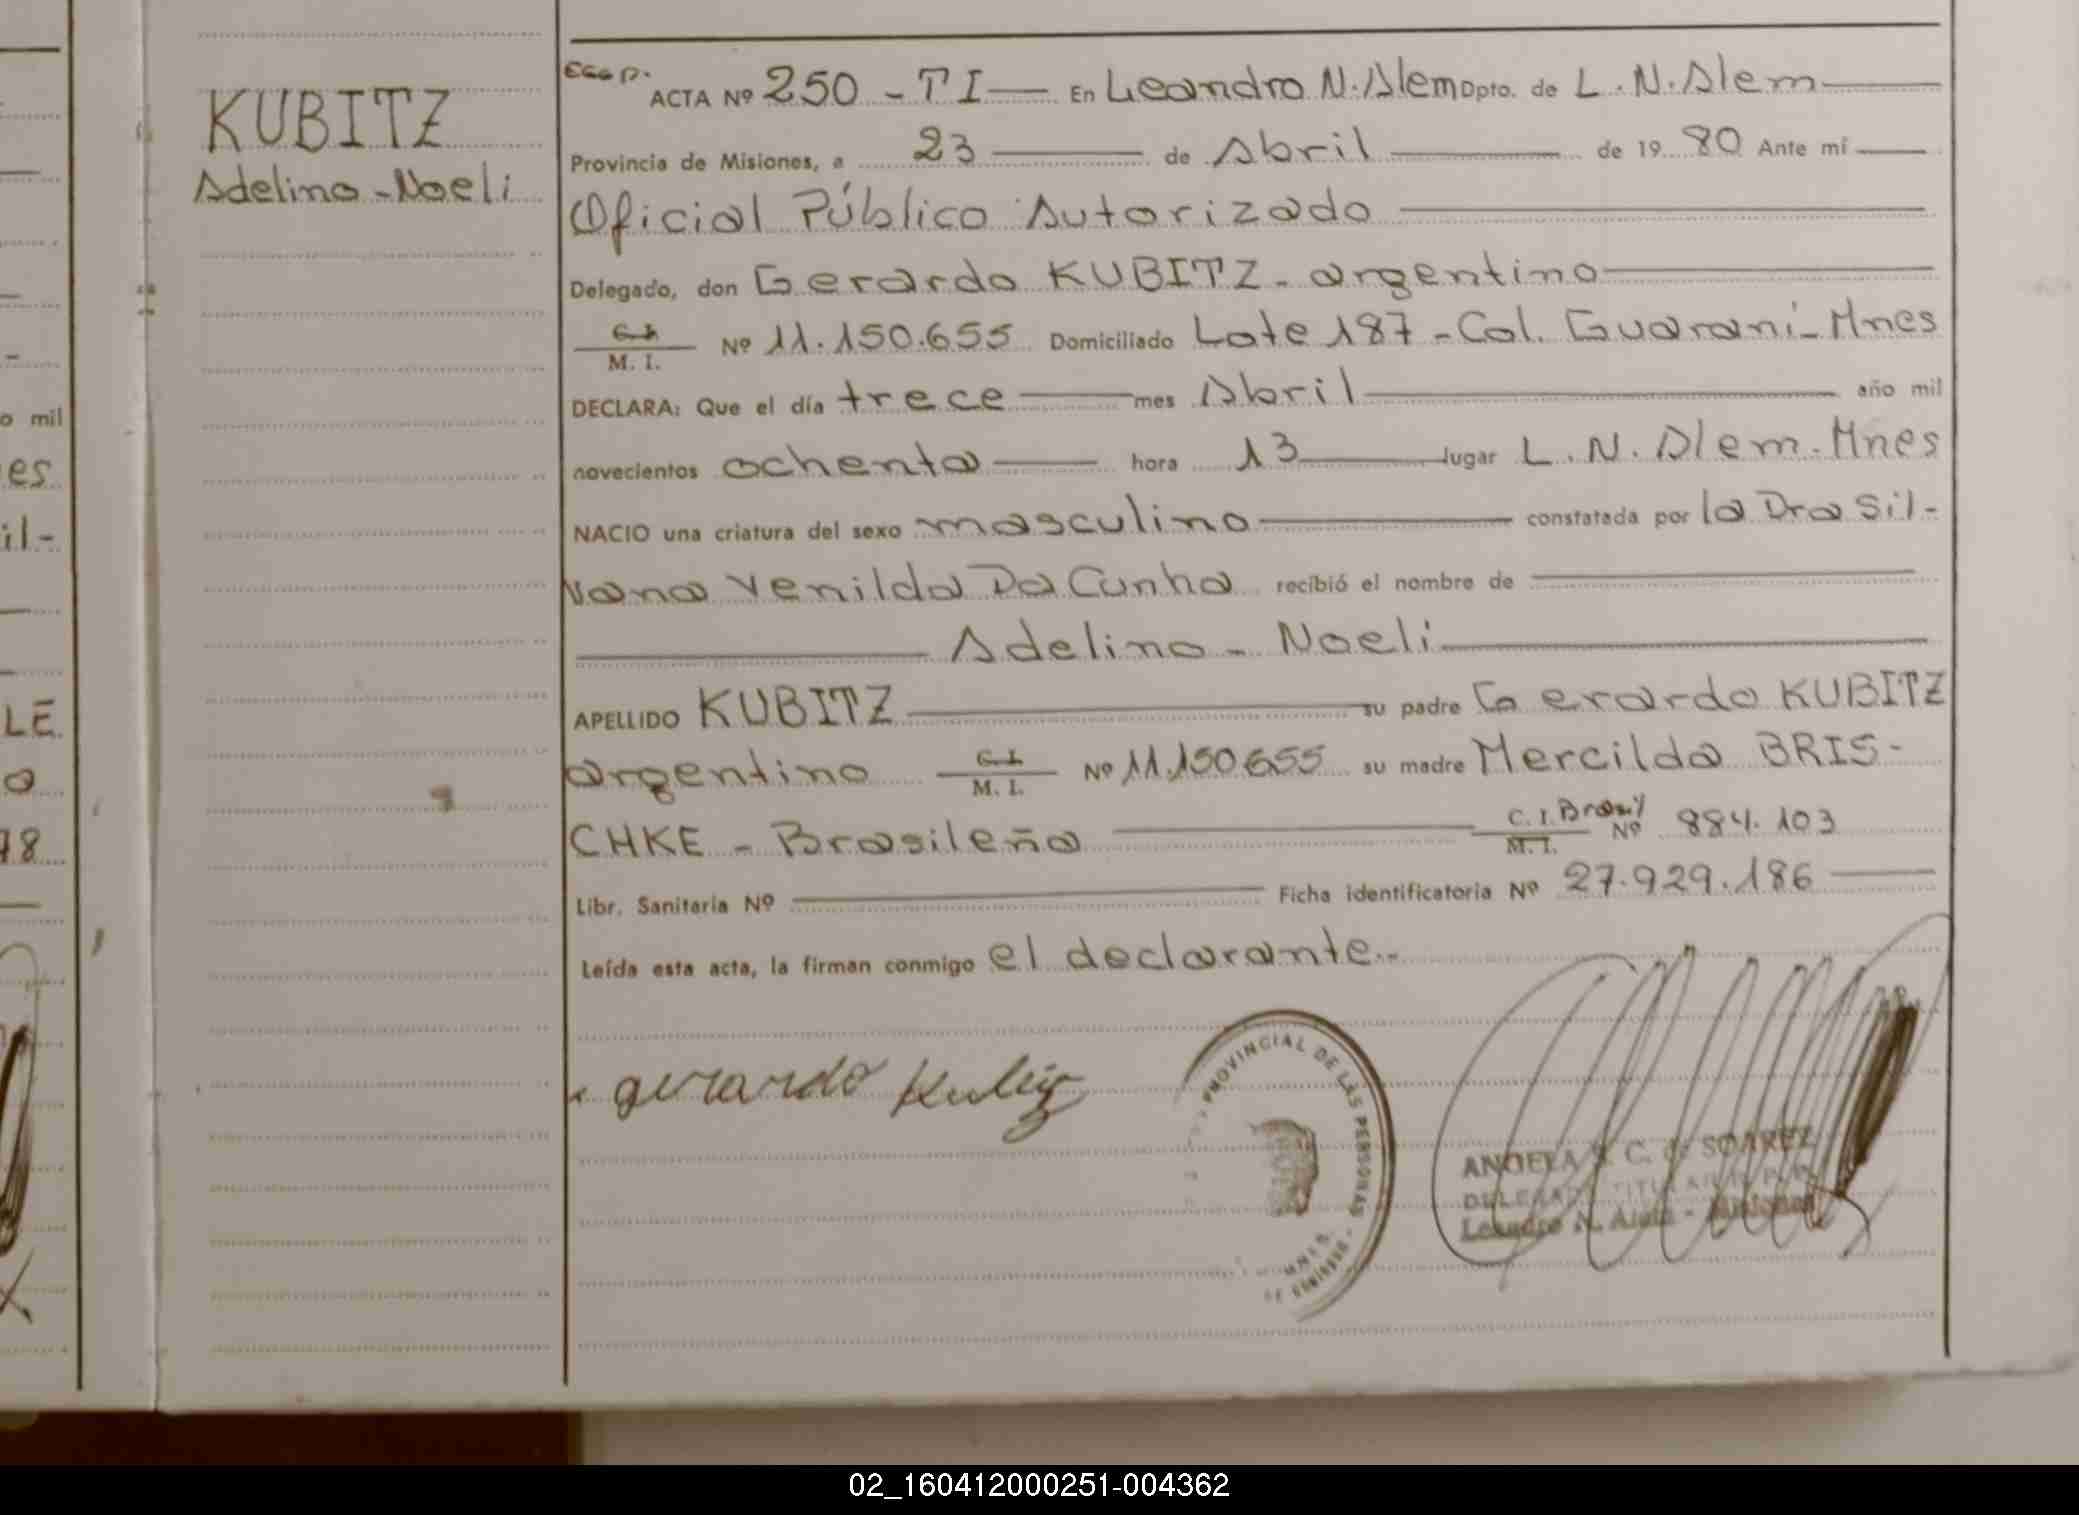 o mil
es
il-
LE
o
78
KUBITZ
Adelino - Noeli
ACTA Nº 250 - TI — En Leandro N. Alem Dpto. de L. N. Alem
Provincia de Misiones, a 23 de Abril de 1980 Ante mí
Oficial Público Autorizado
Delegado, don Gerardo KUBITZ - argentino
C. I.
M. I. Nº 11.150.655 Domiciliado Lote 187 - Col. Guaraní - Mnes
DECLARA: Que el día trece mes Abril año mil
novecientos ochenta hora 13 lugar L. N. Alem. Mnes
NACIO una criatura del sexo masculino constatada por la Dra Sil-
vana Venilda Da Cunha recibió el nombre de
Adelino - Noeli
APELLIDO KUBITZ su padre Gerardo KUBITZ
argentino C. I. M. I. Nº 11.150.655 su madre Mercilda BRIS-
CHKE - Brasileña C. I. Brasil M. I. Nº 884.103
Libr. Sanitaria Nº Ficha identificatoria Nº 27.929.186
Leída esta acta, la firman conmigo el declarante.-
gerardo Kubitz
PROVINCIAL DE LAS PERSONAS
MNES.
ANGELA C. de SOAREZ
DELEGADA TITULAR
Leandro N. Alem - Misiones
02_160412000251-004362